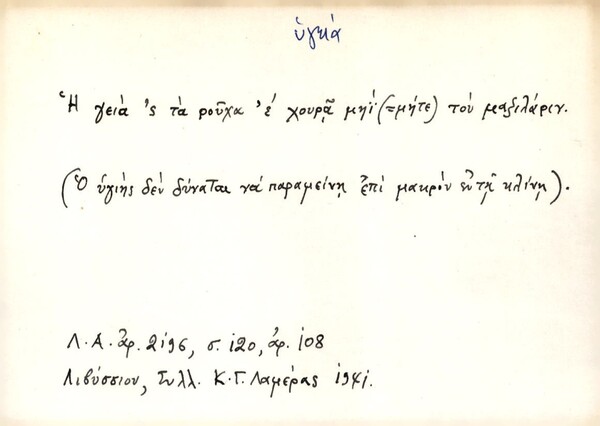 ὑγειά
Ἡ γειὰ 'ς τὰ ροῦχα 'έ χουρᾷ μηΐ (=μήτε) τοὺ μαξιλάριν.
(Ὁ ὑγιὴς δὲν δύναται νά παραμείνῃ ἐπὶ μακρὸν ἐν τῇ κλίνῃ).
Λ.Α. ἀρ. 2196, σ. 120, ἀρ. 108
Λιβύσσιον, Συλλ. Κ.Γ. Λαμέρας 1941.